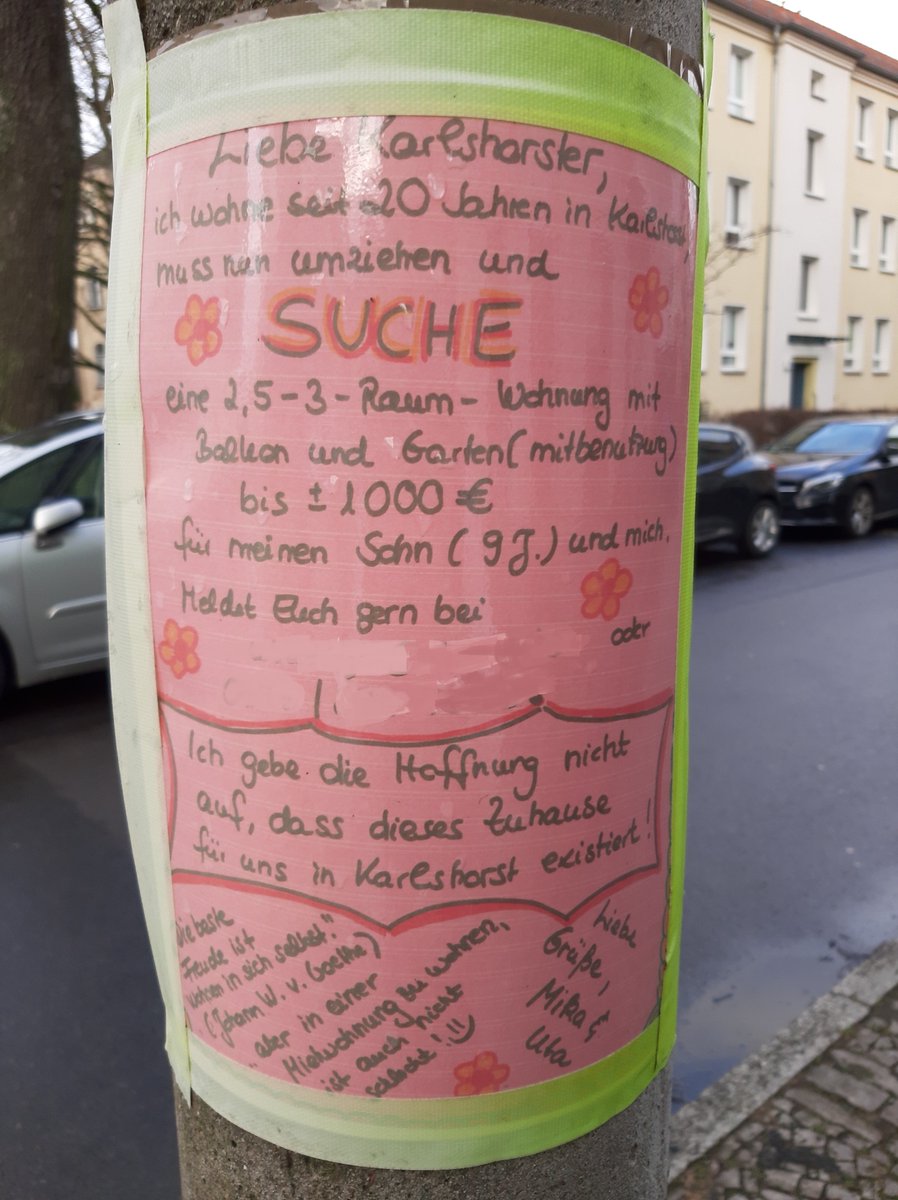 Liebe Karlshorster,
ich wohne seit 20 Jahren in Karlshorst,
muss nun umziehen und
SUCHE
eine 2,5-3-Raum-Wohnung mit
Balkon und Garten(mitbenutzung)
bis ± 1000 €
für meinen Sohn (9 J.) und mich.
Meldet Euch gern bei
oder
Ich gebe die Hoffnung nicht
auf, dass dieses Zuhause
für uns in Karlshorst existiert!
"Die beste
Freude ist
wohnen in sich selbst."
(Johann W. v. Goethe)
aber in einer
Mietwohnung zu wohnen,
ist auch nicht
schlecht!
Liebe
Grüße,
Mika &
Uta